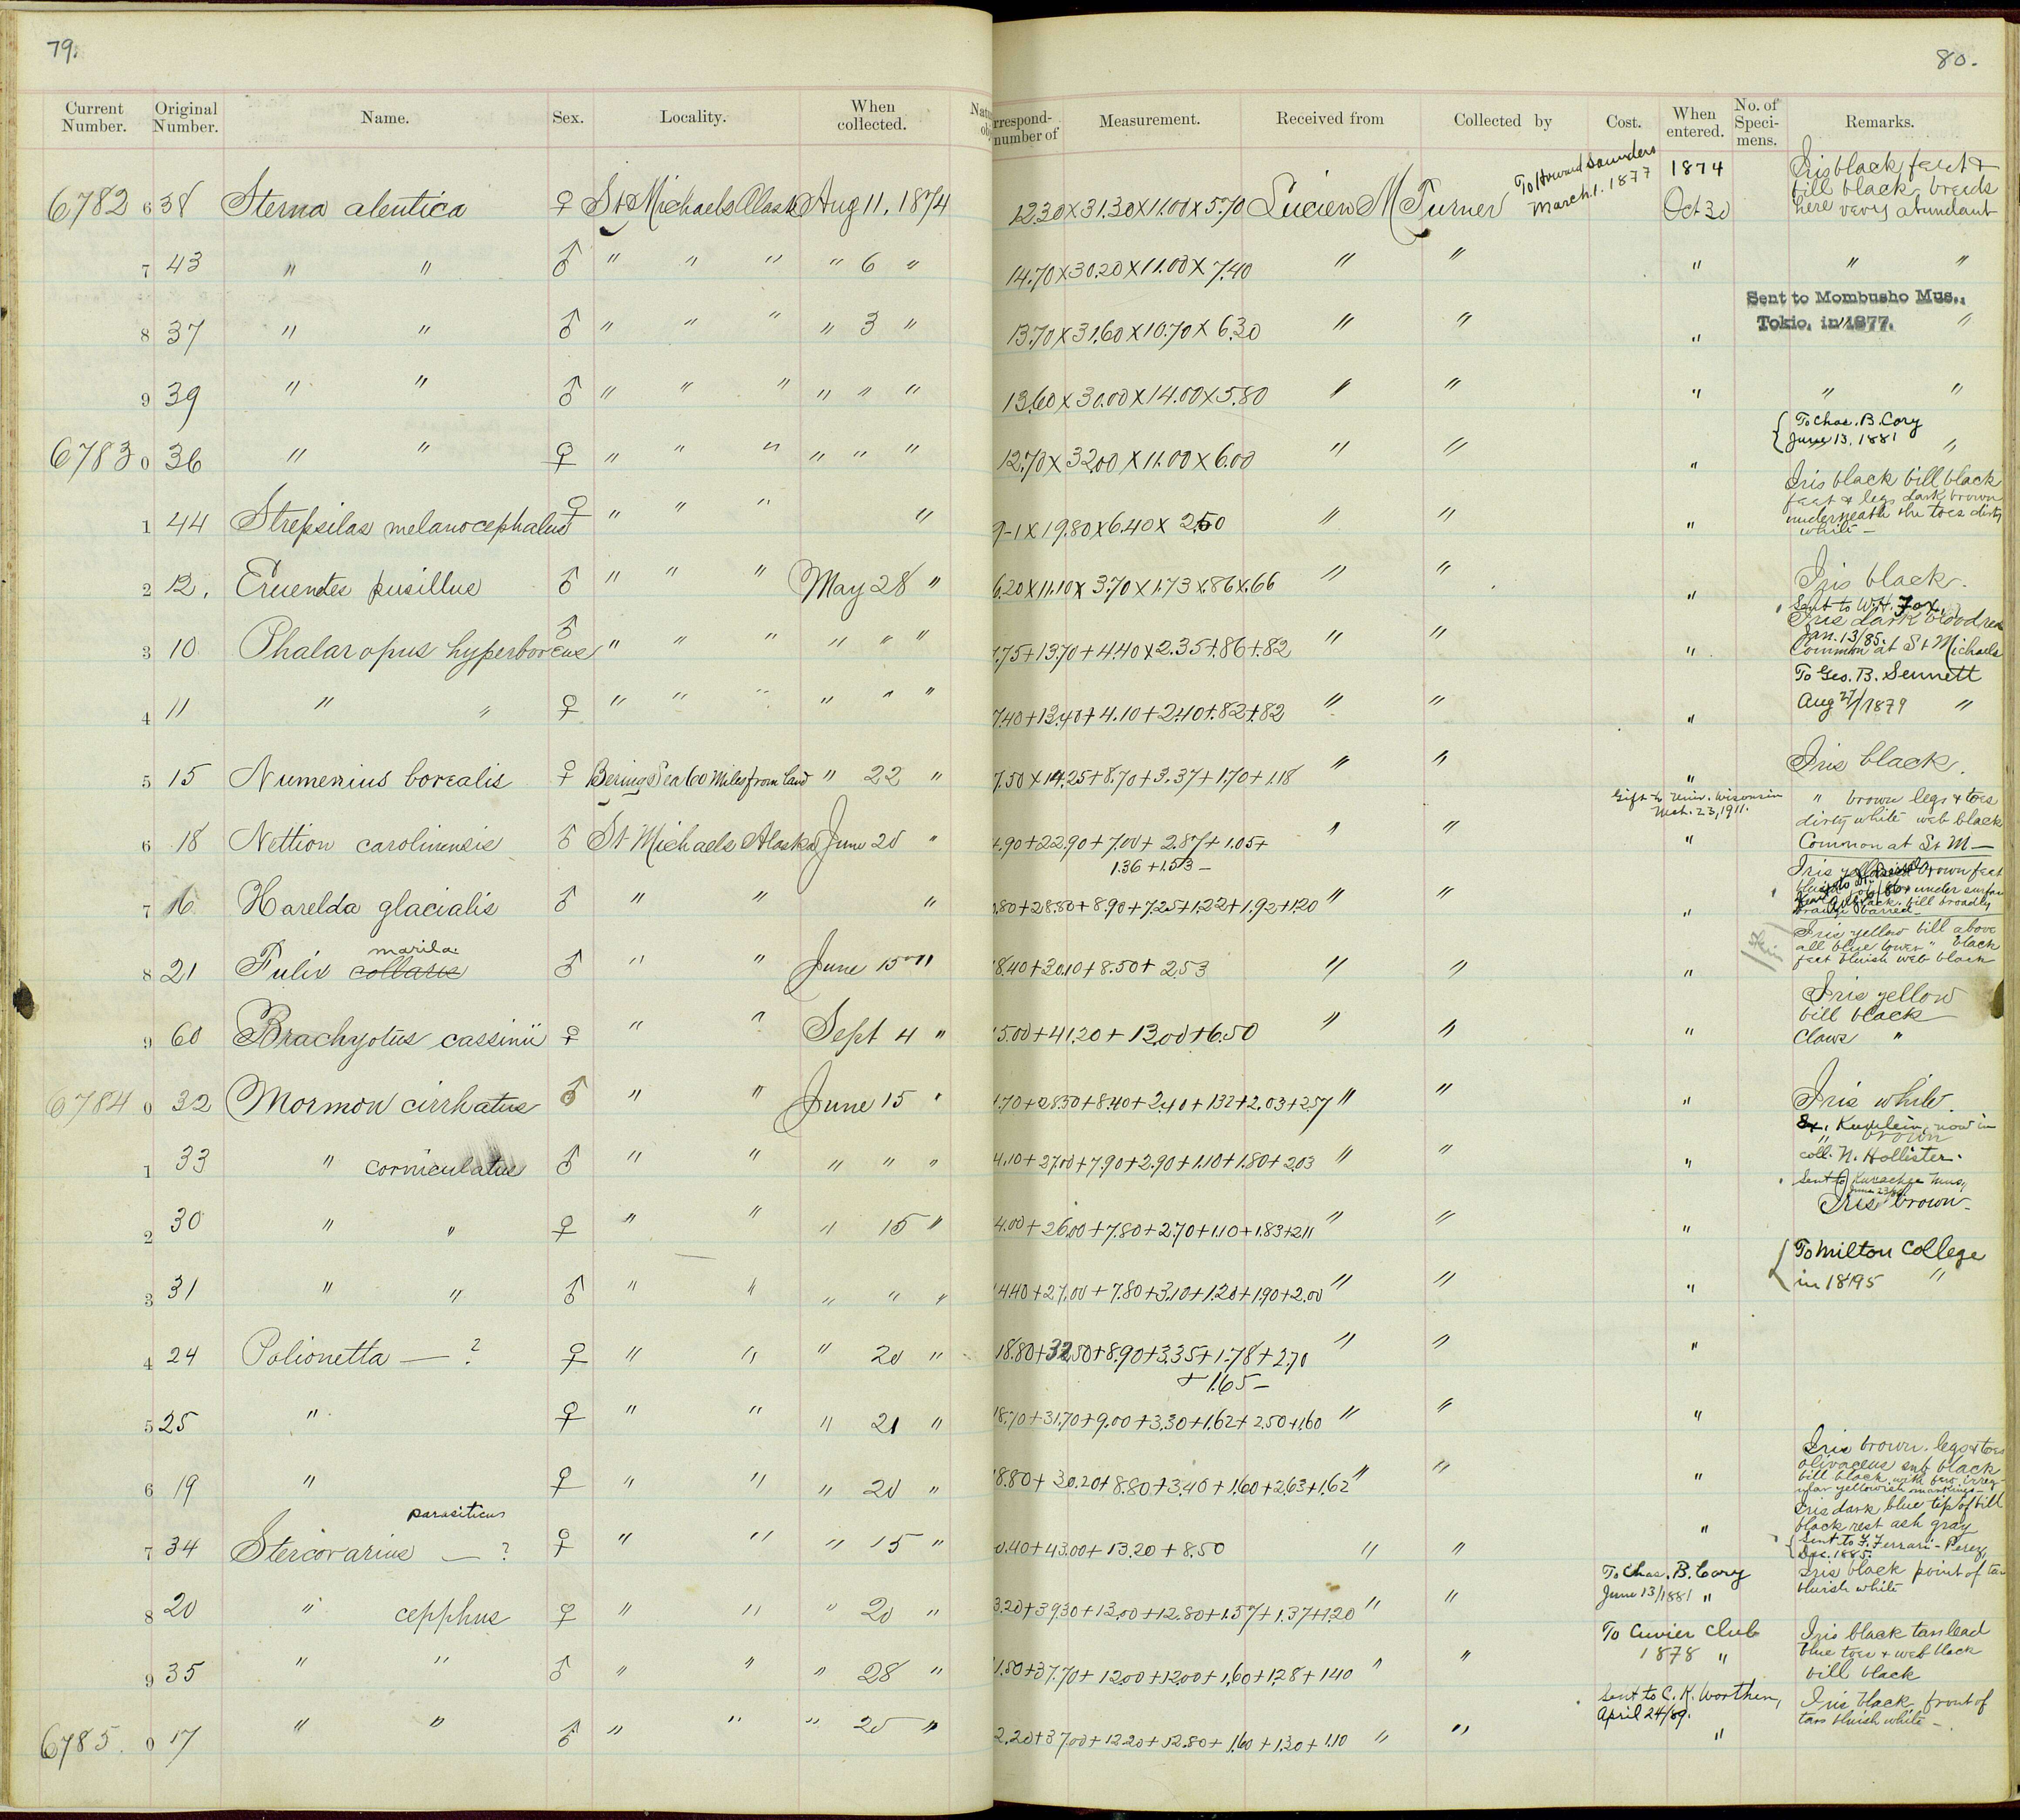 79.
80.
Current Number. Original Number. Name. Sex. Locality. When collected. Natu
rrespond- number of Measurement. Received from Collected by Cost. When entered. No. of Speci- mens. Remarks.
6782 6 38 Sterna aleutica ♀ St Michaels Alaska Aug 11, 1874 12.30 x 31.30 x 11.00 x 5.70 Lucien M Turner To Howard Saunders March. 1. 1877 1874 Oct 30 Iris black feet & bill black breeds here very abundant
7 43 " " ♂ " " " " 6 " 14.70 x 30.20 x 11.00 x 7.40 " " " " "
Sent to Mombusho Mus.,
8 37 " " ♂ " " " " 3 " 13.70 x 31.60 x 10.70 x 6.30 " " " Tokio, in 1877. "
9 39 " " ♂ " " " " " " 13.60 x 30.00 x 14.00 x 5.80 " " " " "
6783 0 36 " " ♀ " " " " " " 12.70 x 32.00 x 11.00 x 6.00 " " " To Chas. B. Cory June 13, 1881 "
1 44 Strepsilas melanocephalus ♀ " " " " 9-1 x 19.80 x 6.40 x 2.50 " " " Iris black bill black feet & legs dark brown underneath the toes dirty white —
2 12. Ereuentes pusillus ♂ " " " May 28 " 6.20 x 11.10 x 3.70 x 1.73 x .86 x .66 " " " Iris black.
Sent to W. H. Fox, Jan. 13/85.
3 10 Phalaropus hyperboreus ♂ " " " " " " 7.75 + 13.70 + 4.40 x 2.35 + .86 + .82 " " " Iris dark blood red Common at St Michaels
4 11 " " ♀ " " " " " " 7.40 + 13.40 + 4.10 + 2.40 + .82 + .82 " " " To Geo. B. Sennett Aug 27/1879 "
5 15 Numenius borealis ♀ Bering Sea 60 Miles from land " 22 " 7.50 x 14.25 + 8.70 + 3.37 + 1.70 + 1.18 " " " Iris black.
Gift to Univ. Wisconsin Mch. 23, 1911.
6 18 Nettion carolinensis ♂ St Michaels Alaska June 20 " 4.90 + 22.90 + 7.00 + 2.87 + 1.05 + 1.36 + 1.53 — " " " " brown legs & toes dirty white web black Common at St M —
7 16 Harelda glacialis ♂ " " " 0.80 + 28.80 + 8.90 + 7.25 + 1.22 + 1.92 + 1.20 " " " Iris brown feet under surface black. bill broadly orange barred —
8 21 Fulix collaris marila. ♂ " " June 15 " 8.40 + 30.10 + 8.50 + 2.53 " " " Iris yellow bill above all blue lower " black feet bluish web black
9 60 Brachyotus cassinii ♀ " " Sept 4 " 5.00 + 41.20 + 13.00 + 6.50 " " " Iris yellow bill black Claws "
6784 0 32 Mormon cirrhatus ♂ " " June 15 " 1.70 + 28.50 + 8.40 + 2.40 + 1.32 + 2.03 + 2.57 " " " Iris white.
1 33 " corniculatus ♂ " " " " " 4.10 + 27.00 + 7.90 + 2.90 + 1.10 + 1.80 + 2.03 " " " Ex. Kumlein, now in coll. N. Hollister. " brown
Sent to Kurachee Mus,
2 30 " " ♀ " " " 15 " 4.00 + 26.00 + 7.80 + 2.70 + 1.10 + 1.83 + 2.11 " " " Iris brown —
3 31 " " ♂ " " " " " 4.40 + 27.00 + 7.80 + 3.10 + 1.20 + 1.90 + 2.00 " " " To Milton College in 1895 "
4 24 Polionetta — ? ♀ " " " 20 " 18.80 + 32.50 + 8.90 + 3.35 + 1.78 + 2.70 + 1.65 — " " "
5 25 " ♀ " " " 21 " 18.70 + 31.70 + 9.00 + 3.30 + 1.62 + 2.50 + 1.60 " " "
6 19 " ♀ " " " 20 " 8.80 + 30.20 + 8.80 + 3.40 + 1.60 + 2.63 + 1.62 " " " Iris brown. legs & toes olivaceus web black bill black with few irregular yellowish markings —
7 34 Stercorarius — ? parasiticus ♀ " " " 15 " 0.40 + 43.00 + 13.20 + 8.50 " " " Iris dark blue tip of bill black rest ash gray
Sent to F. Ferrari-Perez, Dec. 1885.
8 20 " cepphus ♀ " " " 20 " 3.20 + 39.30 + 13.00 + 12.80 + 1.57 + 1.37 + 1.20 " " To Chas. B. Cory June 13/1881 " Iris black point of tar bluish white
9 35 " " ♂ " " " 28 " 1.50 + 37.70 + 12.00 + 12.00 + 1.60 + 1.28 + 1.40 " " To Cuvier Club 1878 " Iris black tars lead blue toes & web black bill black
6785. 0 17 " " ♂ " " " 25 " 2.20 + 37.00 + 12.20 + 12.80 + 1.60 + 1.30 + 1.10 " " Sent to C. K. Worthen, April 24/89. " Iris black front of tars bluish white —